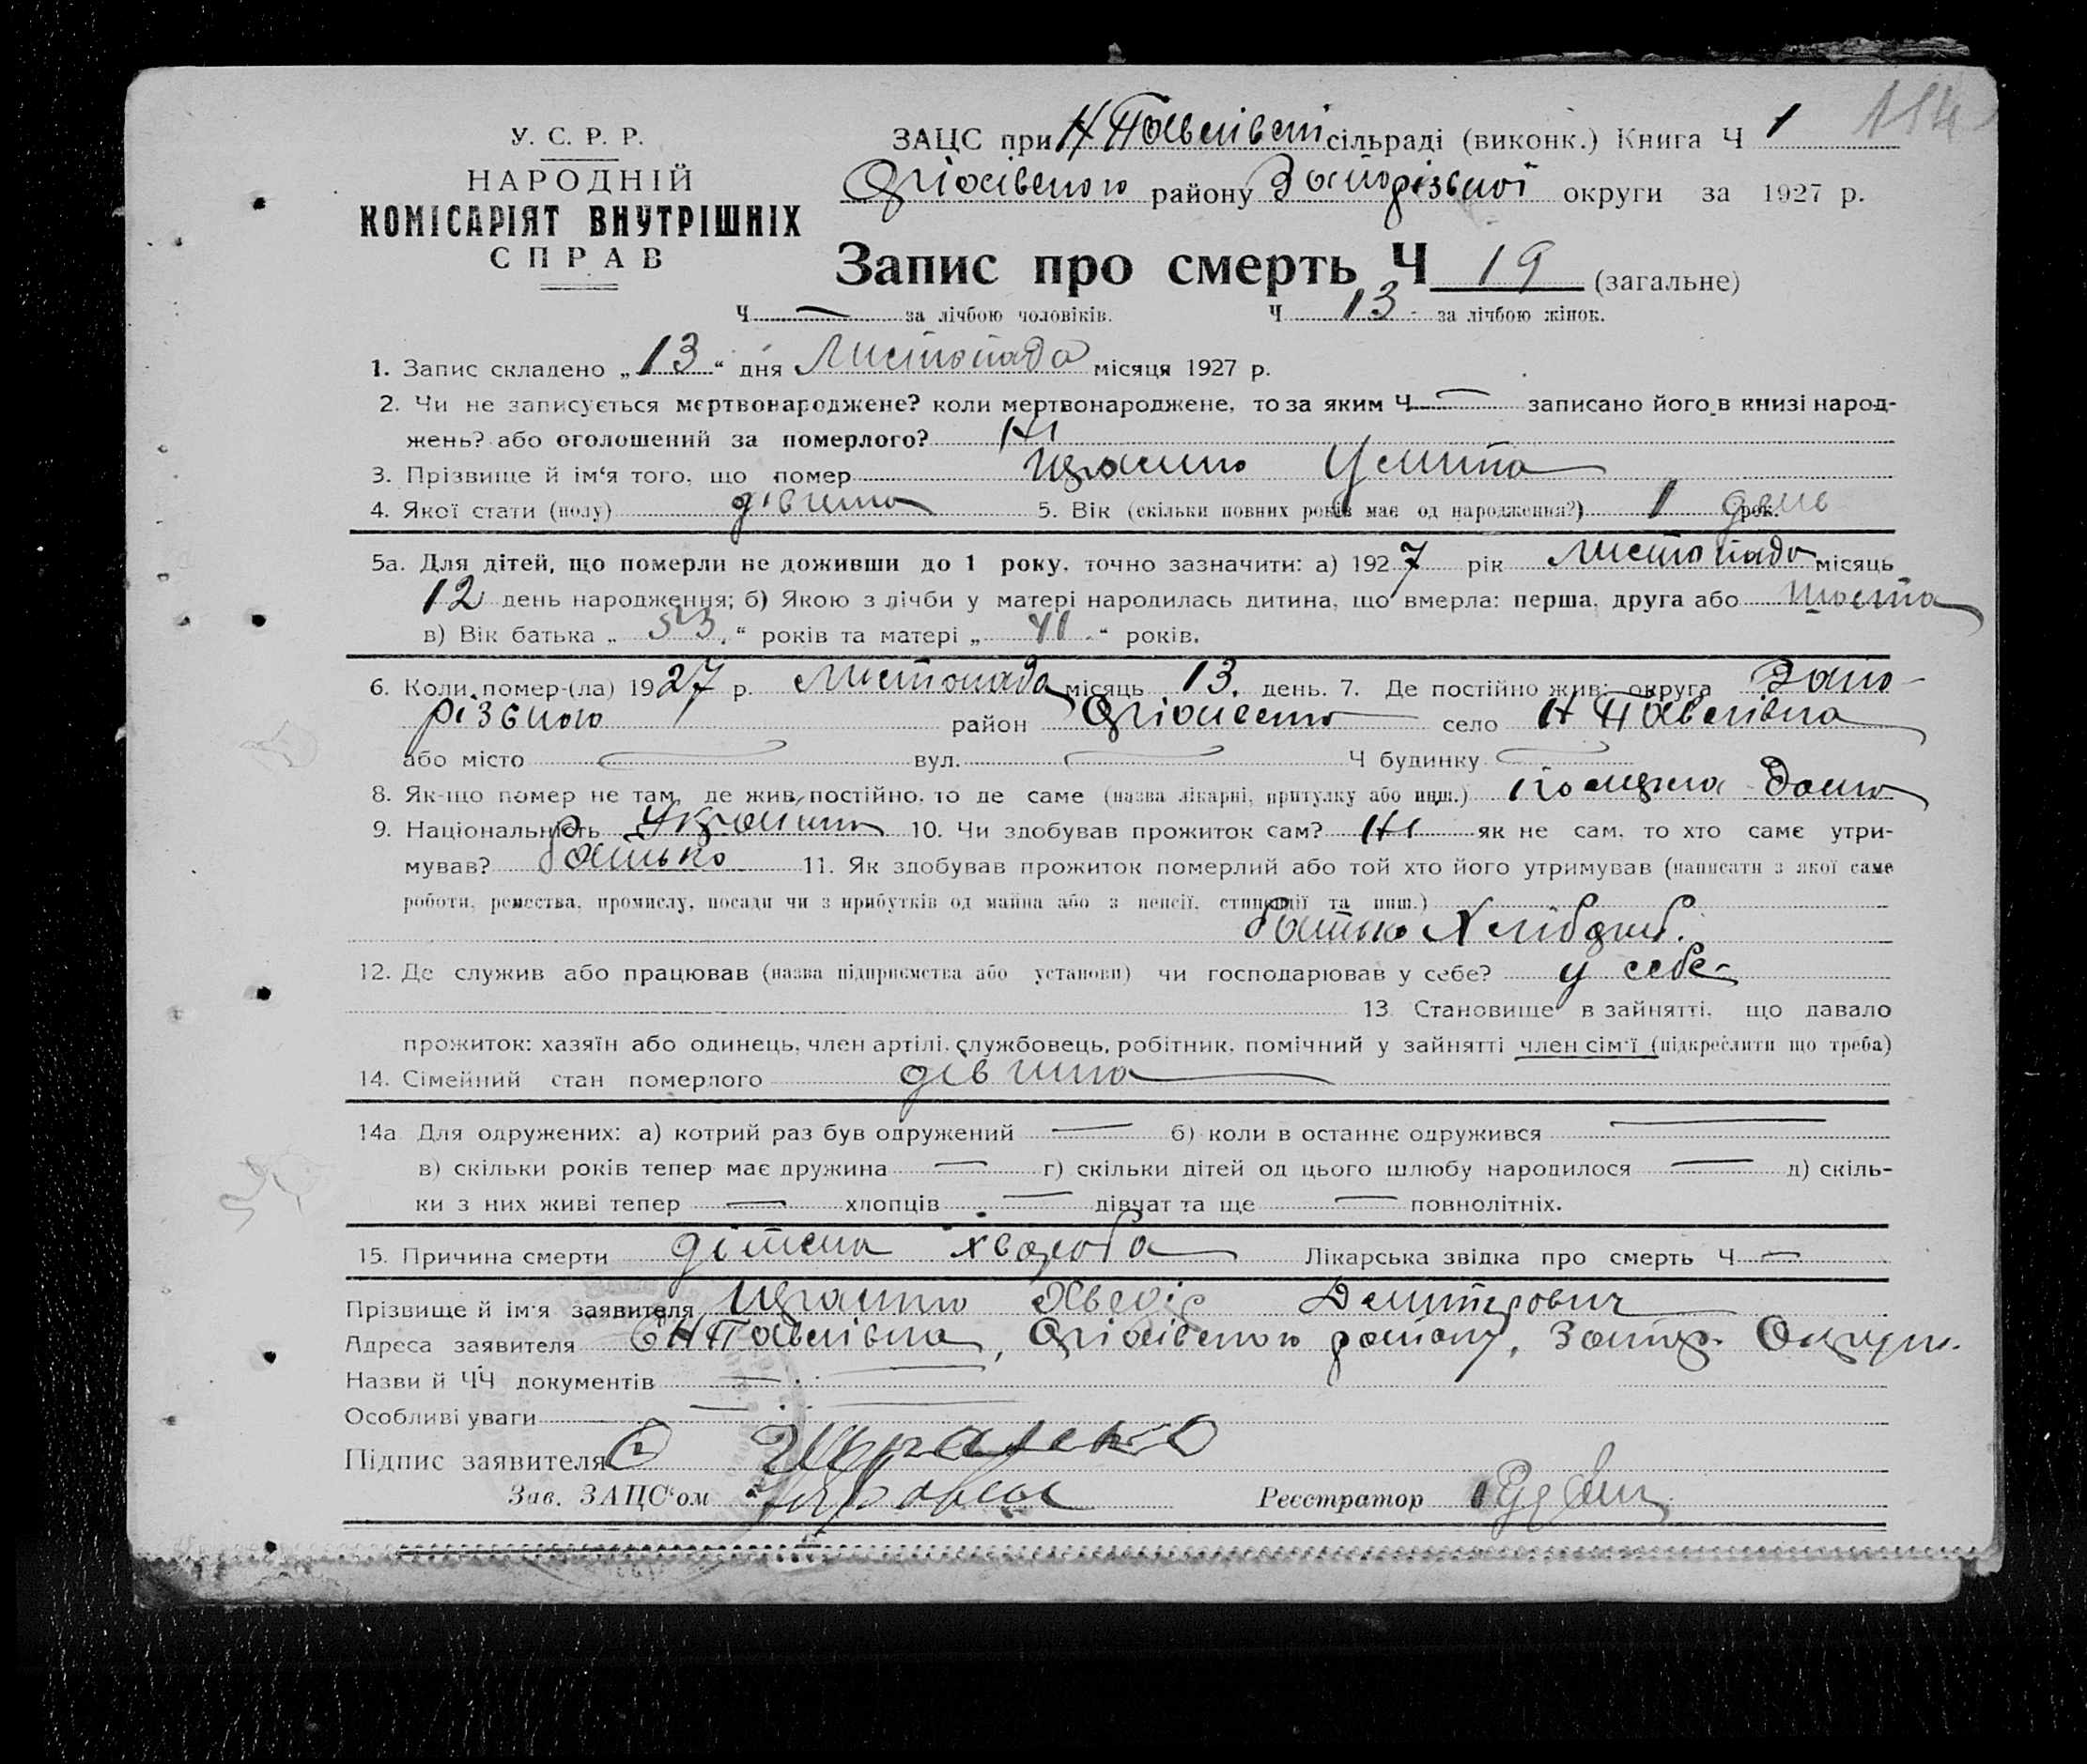 У. С. Р. Р.
НАРОДНІЙ
КОМІСАРІЯТ ВНУТРІШНІХ
СПРАВ
ЗАЦС при Н Павлівск сільраді (виконк.) Книга Ч 1
Оріхівсього району Запорізської округи за 1927 р.
Запис про смерть Ч 19 (загальне)
Ч — за лічбою чоловіків. Ч 13 за лічбою жінок.
1. Запис складено „13“ дня Листопада місяця 1927 р.
2. Чи не записується мертвонароджене? коли мертвонароджене, то за яким Ч — записано його в книзі народ-
жень? або оголошений за померлого? Ні
3. Прізвище й ім‘я того, що помер
4. Якої стати (полу) дівчина 5. Вік (скільки повних років має од народження?) 1 день рок.
5а. Для дітей, що померли не доживши до 1 року, точно зазначити: а) 1927 рік Листопада місяць
12 день народження; б) Якою з лічби у матері народилась дитина, що вмерла: перша, друга або шоста
в) Вік батька „53“ років та матері „41“ років.
6. Коли помер-(ла) 1927 р. Листопада місяць 13 день. 7. Де постійно жив: округа Запо-
різького район Оріхівсько село Н Павлівка
або місто — вул. — Ч будинку —
8. Як-що помер не там, де жив постійно, то де саме (назва лікарні, притулку або инш.) померла дома
9. Національність Українка 10. Чи здобував прожиток сам? Ні як не сам, то хто саме утри-
мував? батько 11. Як здобував прожиток померлий або той хто його утримував (написати з якої саме
роботи, ремества, промислу, посади чи з прибутків од майна або з пенсії, стипендії та инш.)
батько Хлібороб.
12. Де служив або працював (назва підприємства або установи) чи господарював у себе? у себе
13. Становище в зайнятті, що давало
прожиток: хазяїн або одинець, член артілі, службовець, робітник, помічний у зайнятті член сім‘ї (підкреслити що треба)
14. Сімейний стан померлого дівчина
14а Для одружених: а) котрий раз був одружений — б) коли в останнє одружився —
в) скільки років тепер має дружина — г) скільки дітей од цього шлюбу народилося — д) скіль-
ки з них живі тепер — хлопців — дівчат та ще — повнолітніх.
15. Причина смерти дітска хвороба Лікарська звідка про смерть Ч —
Прізвище й ім‘я заявителя Дмитрович
Адреса заявителя С Н Павлівка, Оріхівського району, Запор. Округи.
Назви й ЧЧ документів —
Особливі уваги —
Підпис заявителя
Зав. ЗАЦС‘ом
Реєстратор